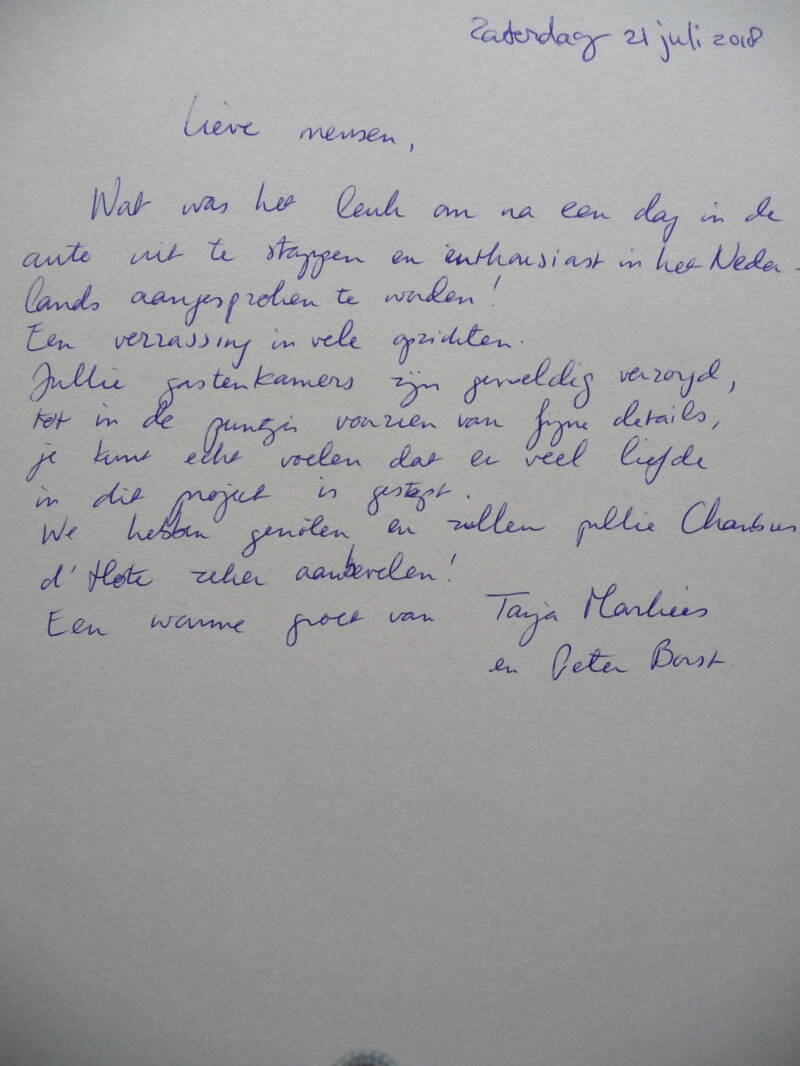 Zaterdag 21 juli 2018
Lieve mensen,
Wat was het leuk om na een dag in de
auto uit te stappen en enthousiast in het Neder-
lands aangesproken te worden!
Een verrassing in vele opzichten.
Jullie gastenkamers zijn geweldig verzorgd,
tot in de puntjes voorzien van fijne details,
je kunt echt voelen dat er veel liefde
in dit project is gestopt.
We hebben genoten en zullen jullie Chambres
d'Hote zeker aanbevelen!
Een warme groet van Tanja
en Peter Borst